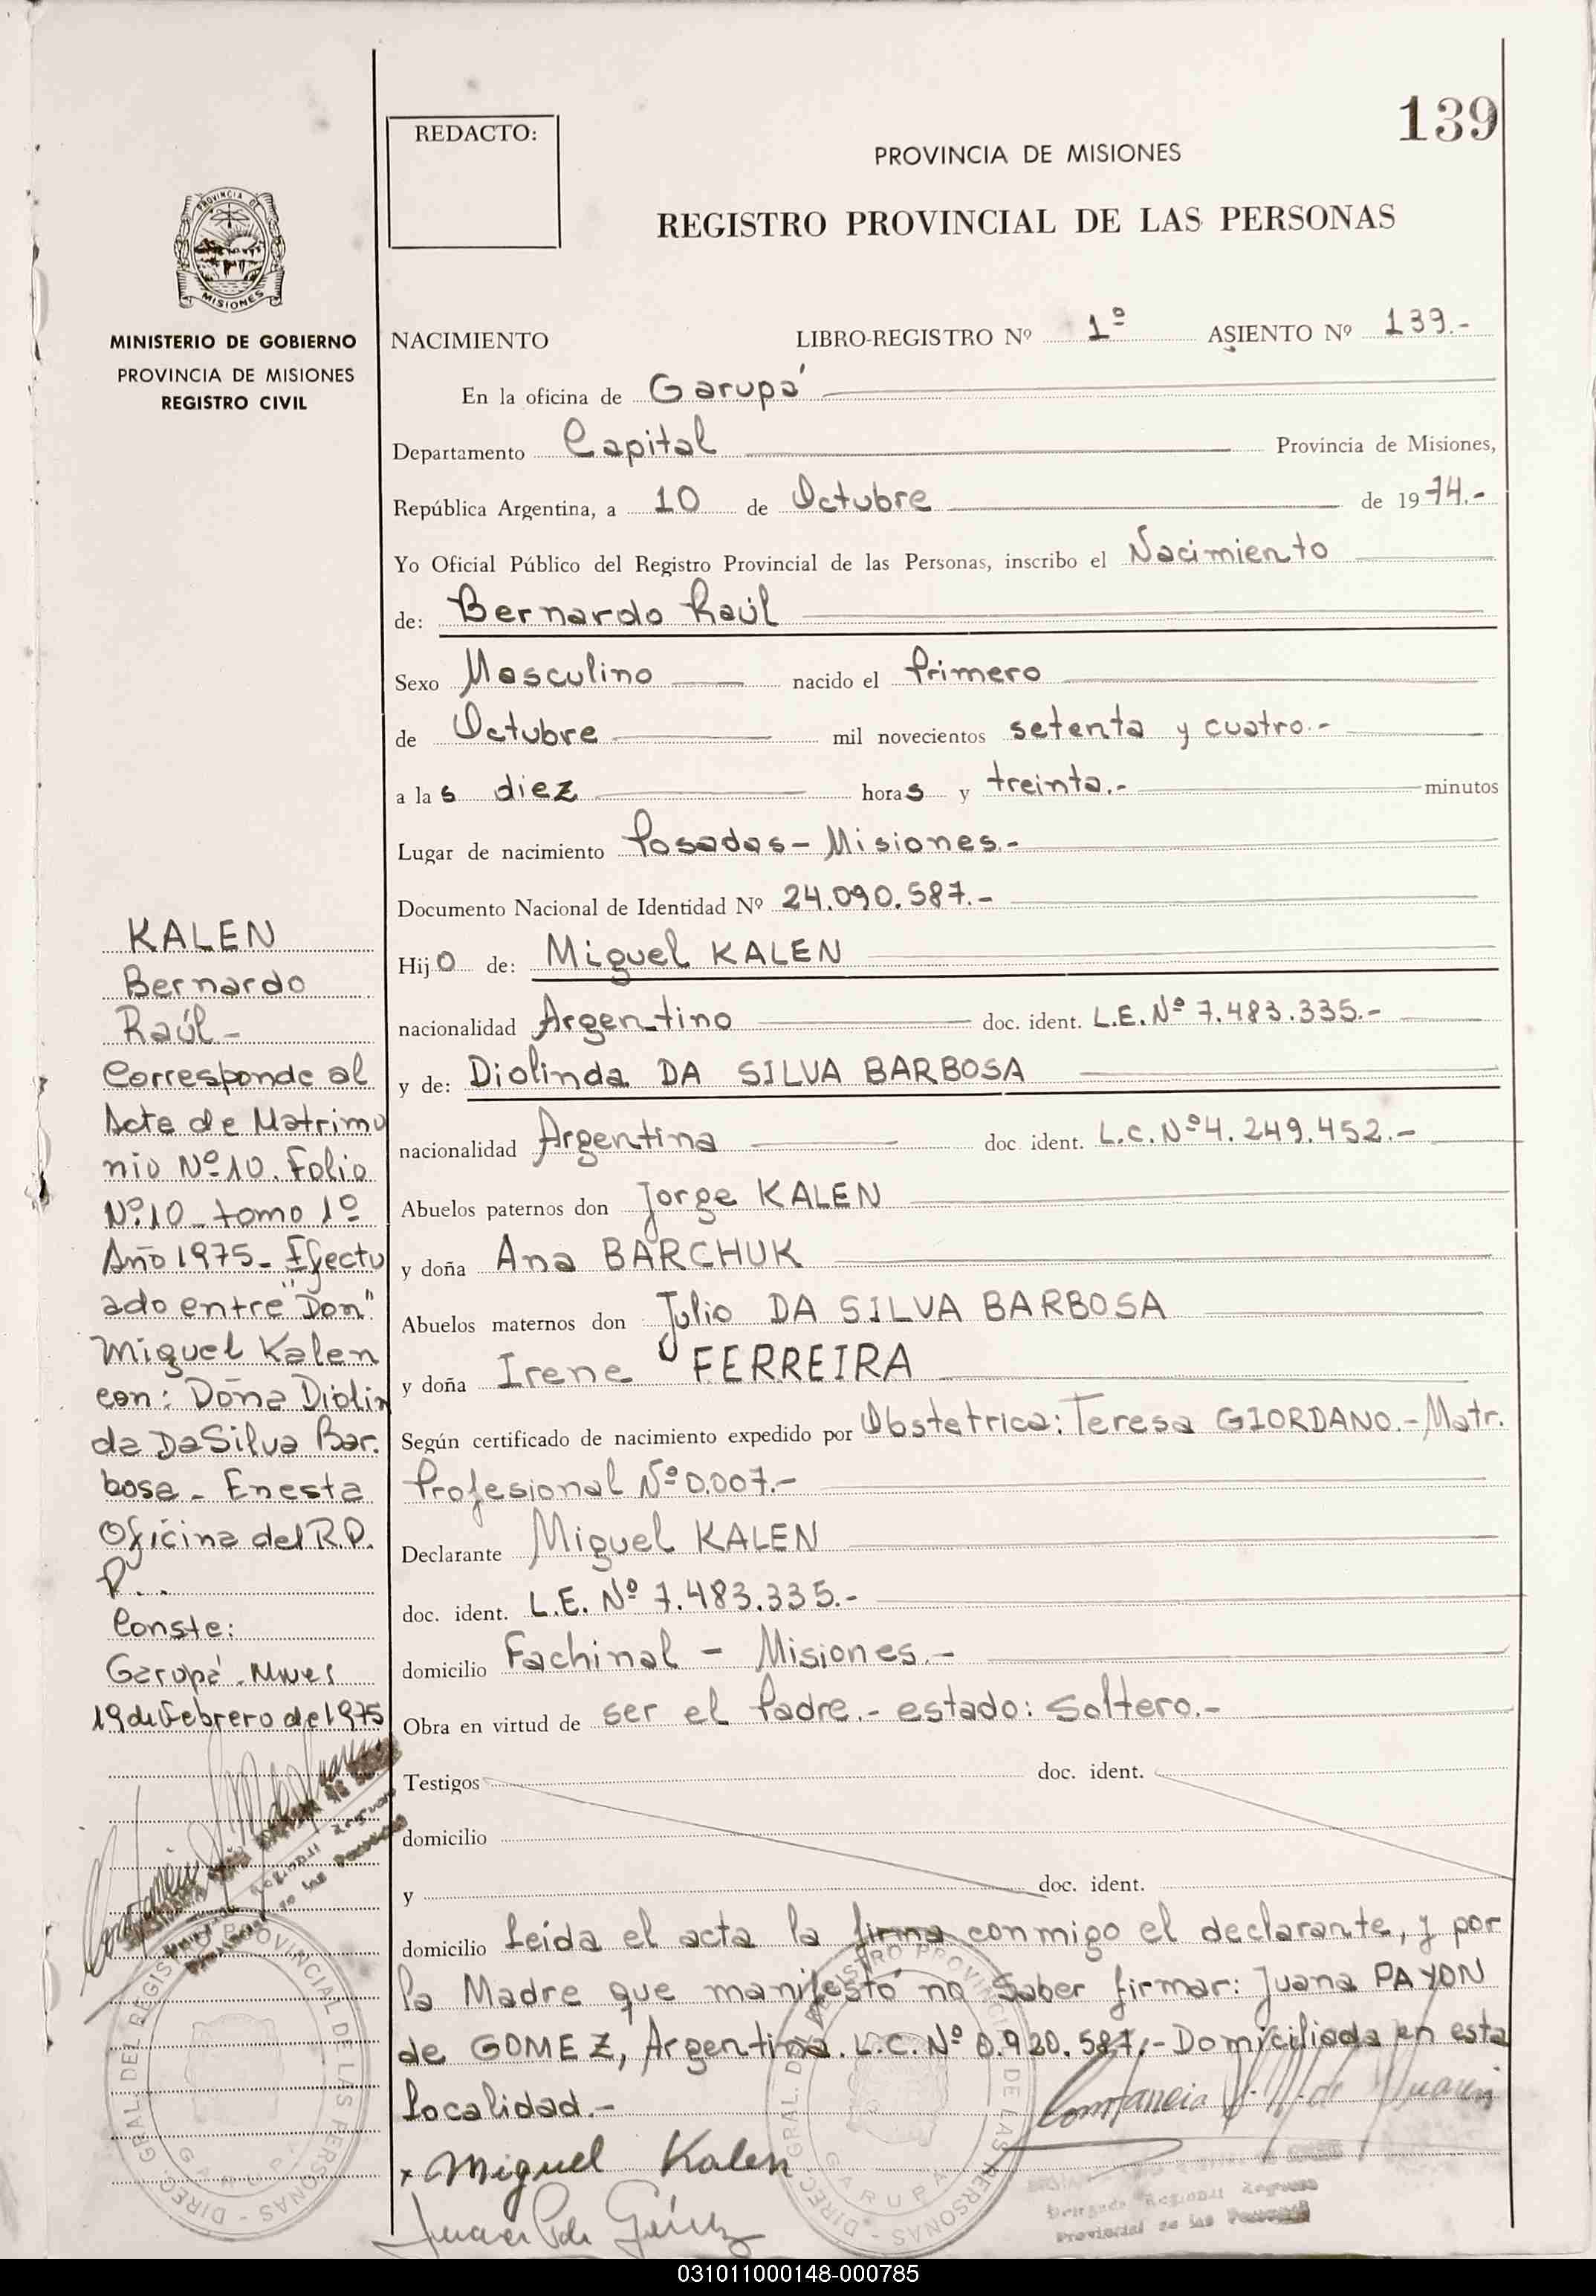 139
REDACTO:
PROVINCIA DE MISIONES
REGISTRO PROVINCIAL DE LAS PERSONAS
PROVINCIA DE
MISIONES
MINISTERIO DE GOBIERNO
PROVINCIA DE MISIONES
REGISTRO CIVIL
NACIMIENTO LIBRO-REGISTRO Nº 1º ASIENTO Nº 139.-
En la oficina de Garupá
Departamento Capital Provincia de Misiones,
República Argentina, a 10 de Octubre de 1974.-
Yo Oficial Público del Registro Provincial de las Personas, inscribo el Nacimiento
de: Bernardo Raúl
Sexo Masculino nacido el Primero
de Octubre mil novecientos setenta y cuatro.-
a las diez horas y treinta.- minutos
Lugar de nacimiento Posadas - Misiones.-
Documento Nacional de Identidad Nº 24.090.587.-
Hijo de: Miguel KALEN
nacionalidad Argentino doc. ident. L.E. Nº 7.483.335.-
y de: Diolinda DA SILVA BARBOSA
nacionalidad Argentina doc ident. L.C. Nº 4.249.452.-
Abuelos paternos don Jorge KALEN
y doña Ana BARCHUK
Abuelos maternos don Julio DA SILVA BARBOSA
y doña Irene FERREIRA
Según certificado de nacimiento expedido por Obstetrica: Teresa GIORDANO.- Matr.
Profesional Nº 0.007.-
Declarante Miguel KALEN
doc. ident. L.E. Nº 7.483.335.-
domicilio Fachinal - Misiones.-
Obra en virtud de ser el Padre.- estado: Soltero.-
Testigos doc. ident.
domicilio
y doc. ident.
domicilio Leída el acta la firma conmigo el declarante, y por
la Madre que manifestó no saber firmar: Juana PAYON
de GOMEZ, Argentina. L.C. Nº 0.920.587.- Domiciliada en esta
localidad.-
x Miguel Kalen
KALEN
Bernardo
Raúl -
Corresponde al
Acta de Matrimo
nio Nº 10. Folio
Nº 10 - tomo 1º
Año 1975 - Efectu
ado entre "Don"
Miguel Kalen
con: Doña Diolin
da Da Silva Bar.
bosa - En esta
Oficina del R.P.
P...
Conste:
Garupá - Mnes
19 de Febrero de 1975
DIREC. GRAL. DEL REGISTRO PROVINCIAL DE LAS PERSONAS - GARUPA
DIREC. GRAL. DEL REGISTRO PROVINCIAL DE LAS PERSONAS - GARUPA
Delegada Regional Registro
Provincial de las Personas
031011000148-000785